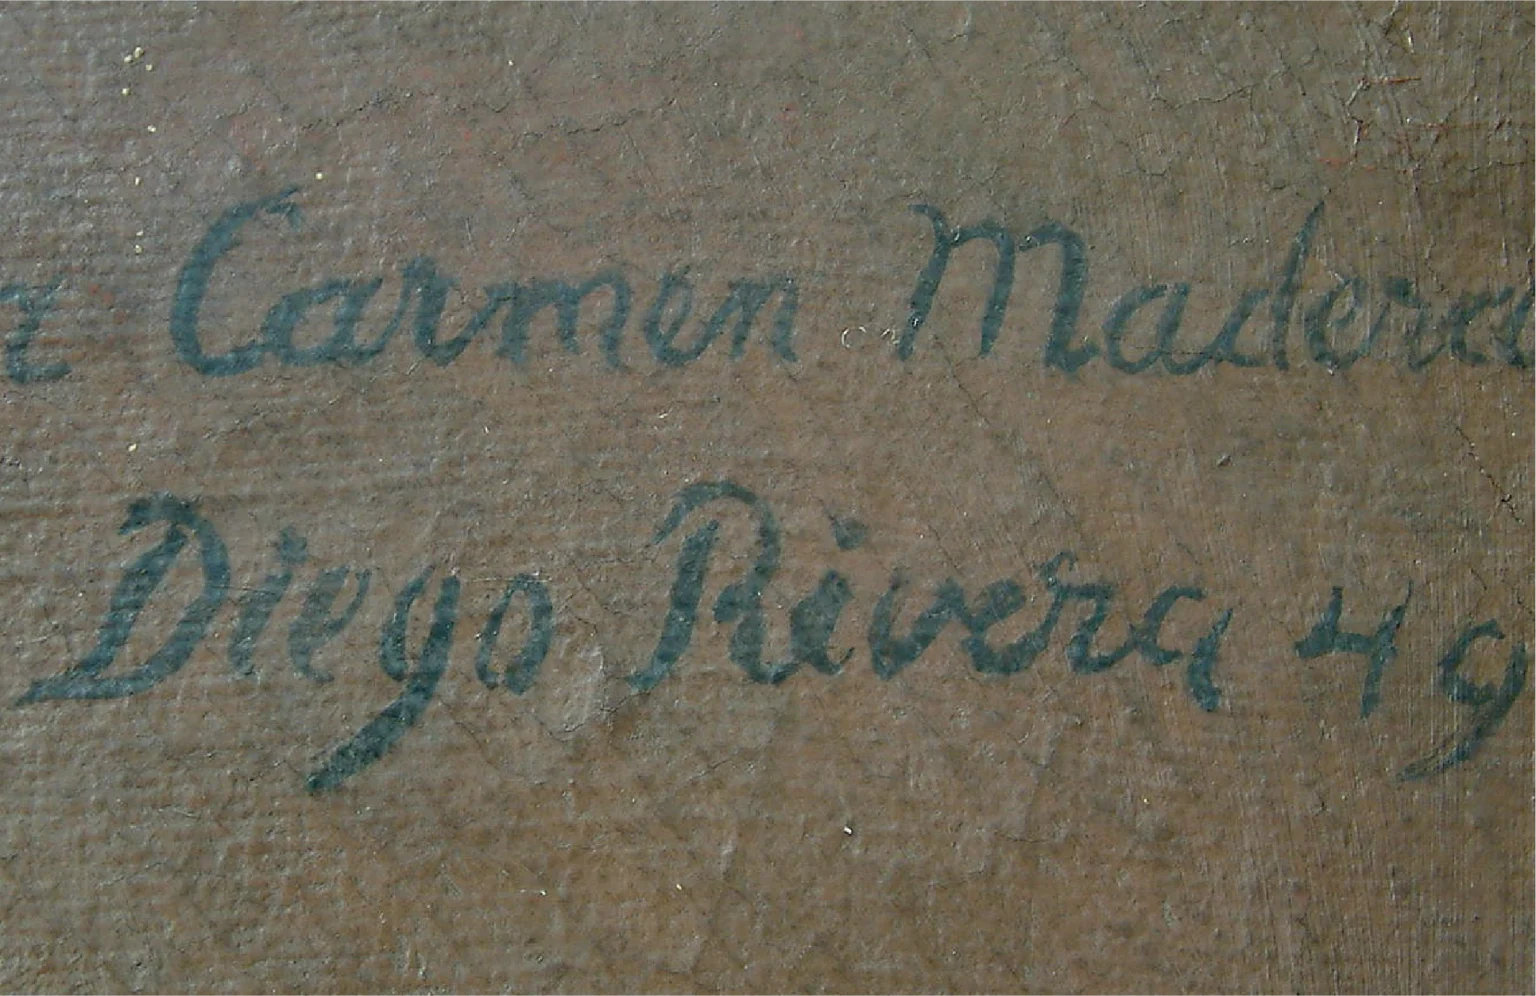 a Carmen Madera
Diego Rivera 49